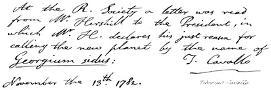 At the R. Society a letter was read
from Mr. Hershill to the President, in
which Mr. H. declares his just reason for
calling the new planet by the name of
Georgium sidus:
T. Cavallo
November the 13th 1782.